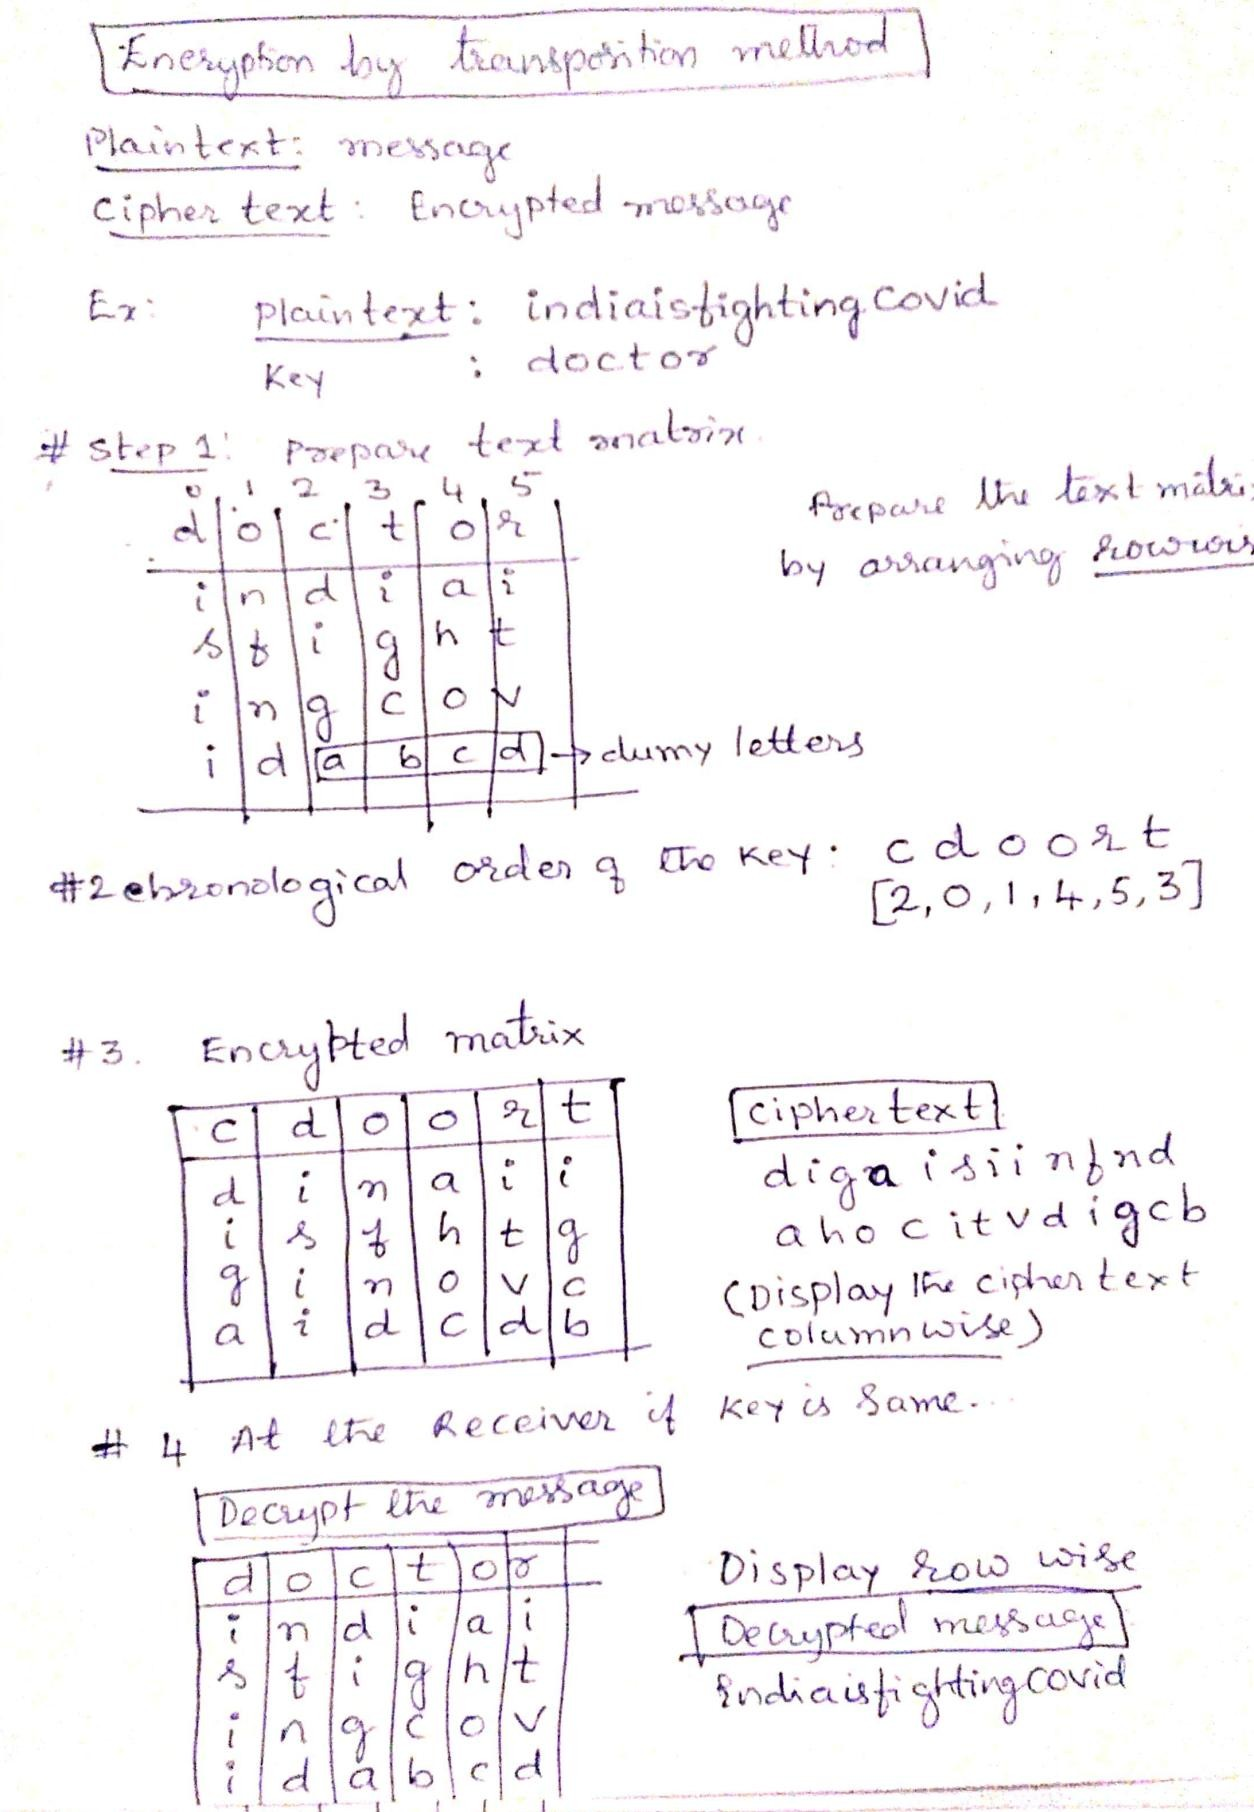 Encryption by transposition method
Plaintext: message
Cipher text: Encrypted message
Ex: plaintext: indiaisfighting covid
Key : doctor
# Step 1: Prepare text matrix.
0 1 2 3 4 5
d o c t o r
i n d i a i
s f i g h t
i n g c o v
i d a b c d → dumy letters
Prepare the text matri
by arranging rowwis
#2 chronological order of the key: c d o o r t
[2,0,1,4,5,3]
#3. Encrypted matrix
c d o o r t
d i n a i i
i s f h t g
g i n o v c
a i d c d b
Ciphertext
diga isii nfnd
ahoc itvd igcb
(Display the cipher text
columnwise)
# 4 At the Receiver if key is same...
Decrypt the message
d o c t o r
i n d i a i
s f i g h t
i n g c o v
i d a b c d
Display row wise
Decrypted message
indiaisfightingcovid